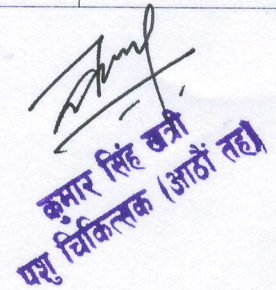 कुमार सिंह खत्री
पशु चिकित्सक (आठौं तह)